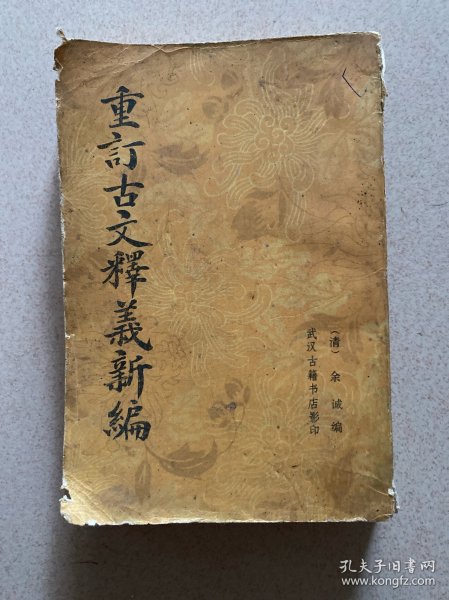 重訂古文釋義新編
（清） 余 诚 编
武汉古籍书店影印
孔夫子旧书网
www.kongfz.com